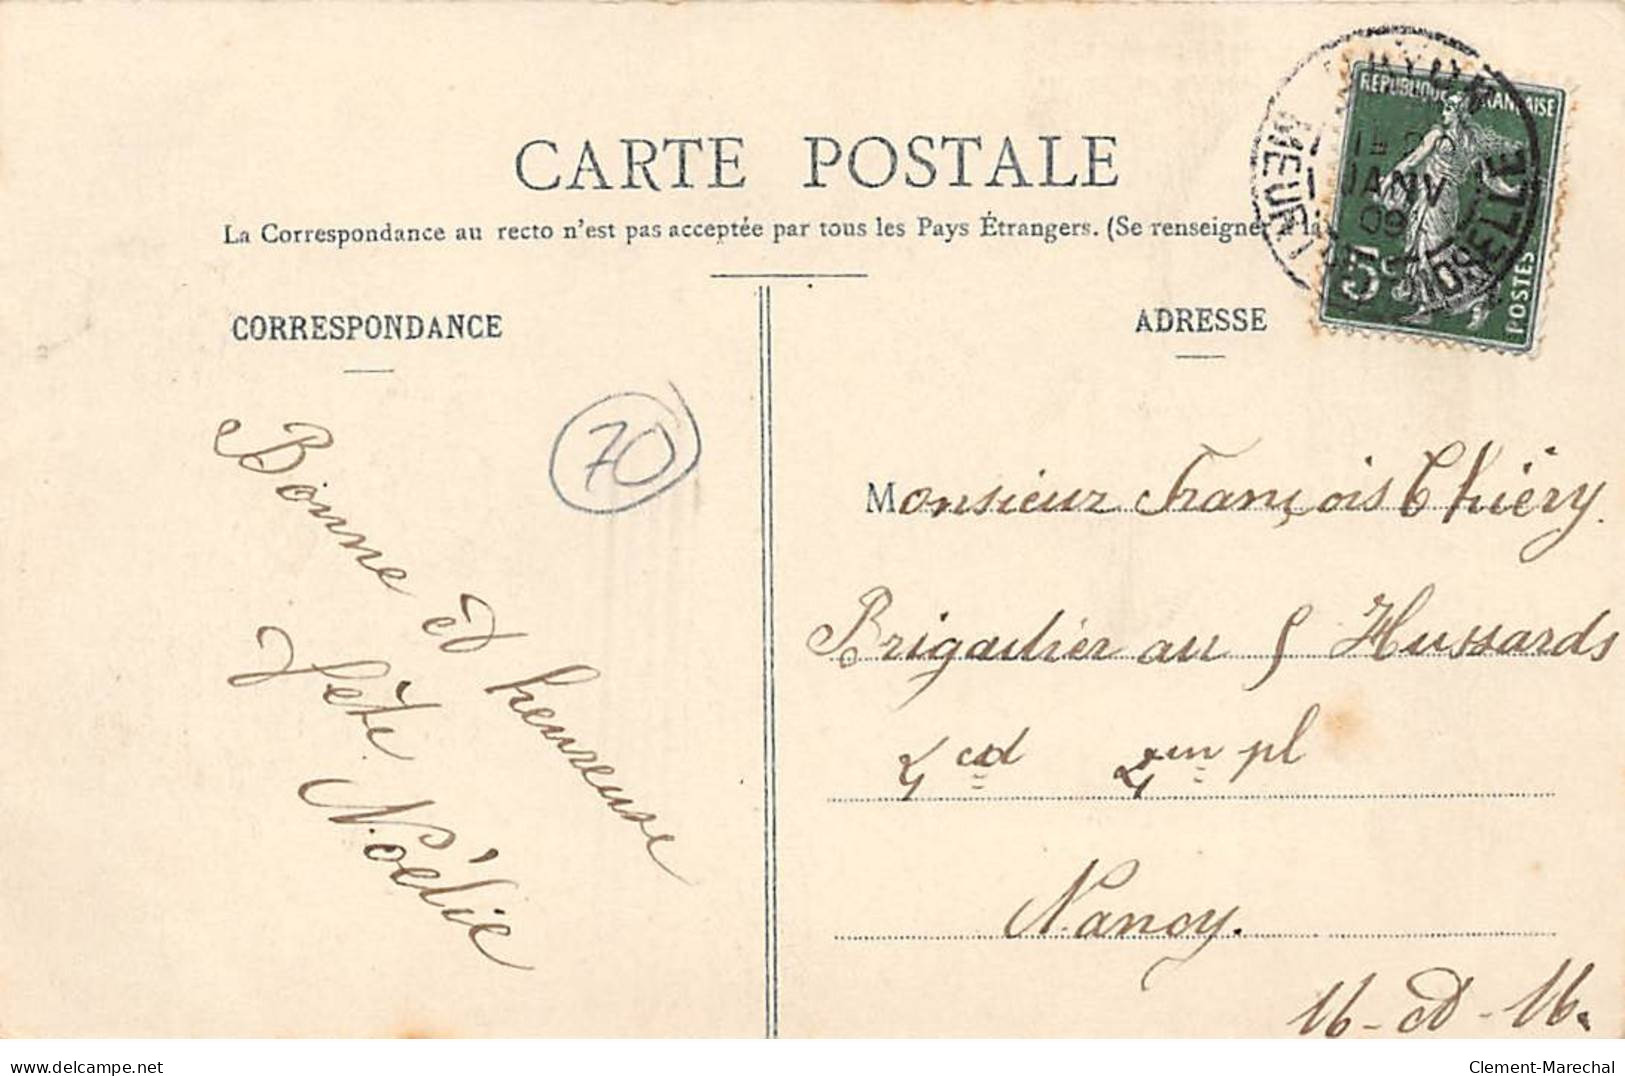 CARTE POSTALE
La Correspondance au recto n'est pas acceptée par tous les Pays Étrangers. (Se renseigner
CORRESPONDANCE
ADRESSE
RÉPUBLIQUE FRANÇAISE
5c
POSTES
JANV
09
MEURTHE
MOSELLE
70
Bonne et heureuse
fête
Noëlie
Monsieur François Thiéry.
Brigadier au 5 Hussards
4 ed 2em pl
Nancy.
M-et-M.
Clement-Marechal